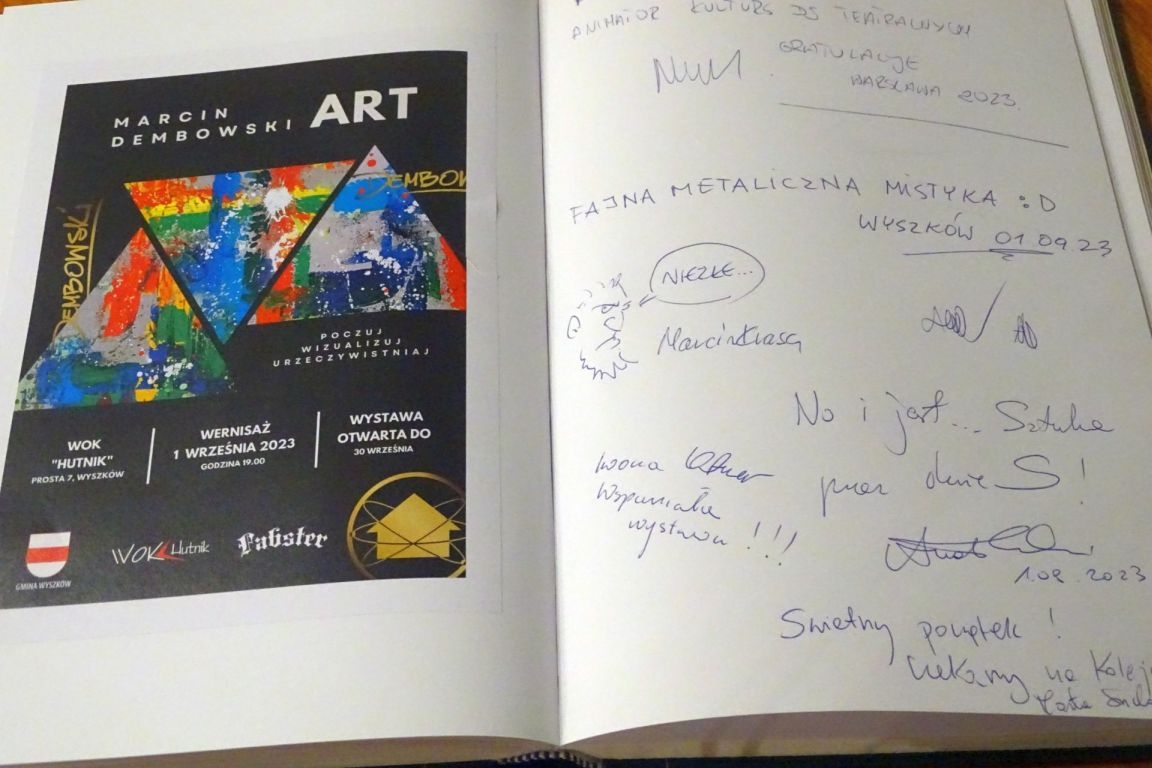 MARCIN
DEMBOWSKI
ART
DEMBOWSKI
DEMBOW
POCZUJ
WIZUALIZUJ
URZECZYWISTNIAJ
WOK
"HUTNIK"
PROSTA 7, WYSZKÓW
WERNISAŻ
1 WRZEŚNIA 2023
GODZINA 19.00
WYSTAWA
OTWARTA DO
30 WRZEŚNIA
GMINA WYSZKÓW
WOK Hutnik
Fabster
ANIMATOR KULTURY DS TEATRALNYCH
GRATULACJE
WARSZAWA 2023.
FAJNA METALICZNA MISTYKA :D
WYSZKÓW 01 09.23
NIEZŁE...
No i jest... Sztuka
przez duże S!
Iwona
Wspaniała
wystawa !!!
1.09.2023
Świetny początek!
Czekamy na